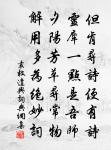 但肯尋詩便有詩
靈犀一點是吾師
夕陽芳草尋常物
解用多為絕妙詞
袁枚遣興詩典網集